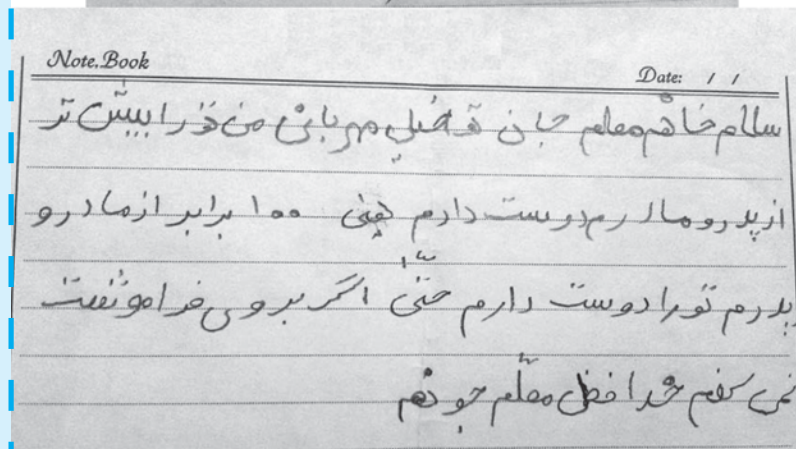 Note.Book
Date: / /
سلام خاهم معلم جان تو خیلی مهربانی من تو را بیش تر
از پدر و مادرم دوست دارم یعنی ۱۰۰ برابر از مادر و
پدرم تو را دوست دارم حتّی اگر بروی فراموشت
نمی کنم خدا فظ معلّم جونم